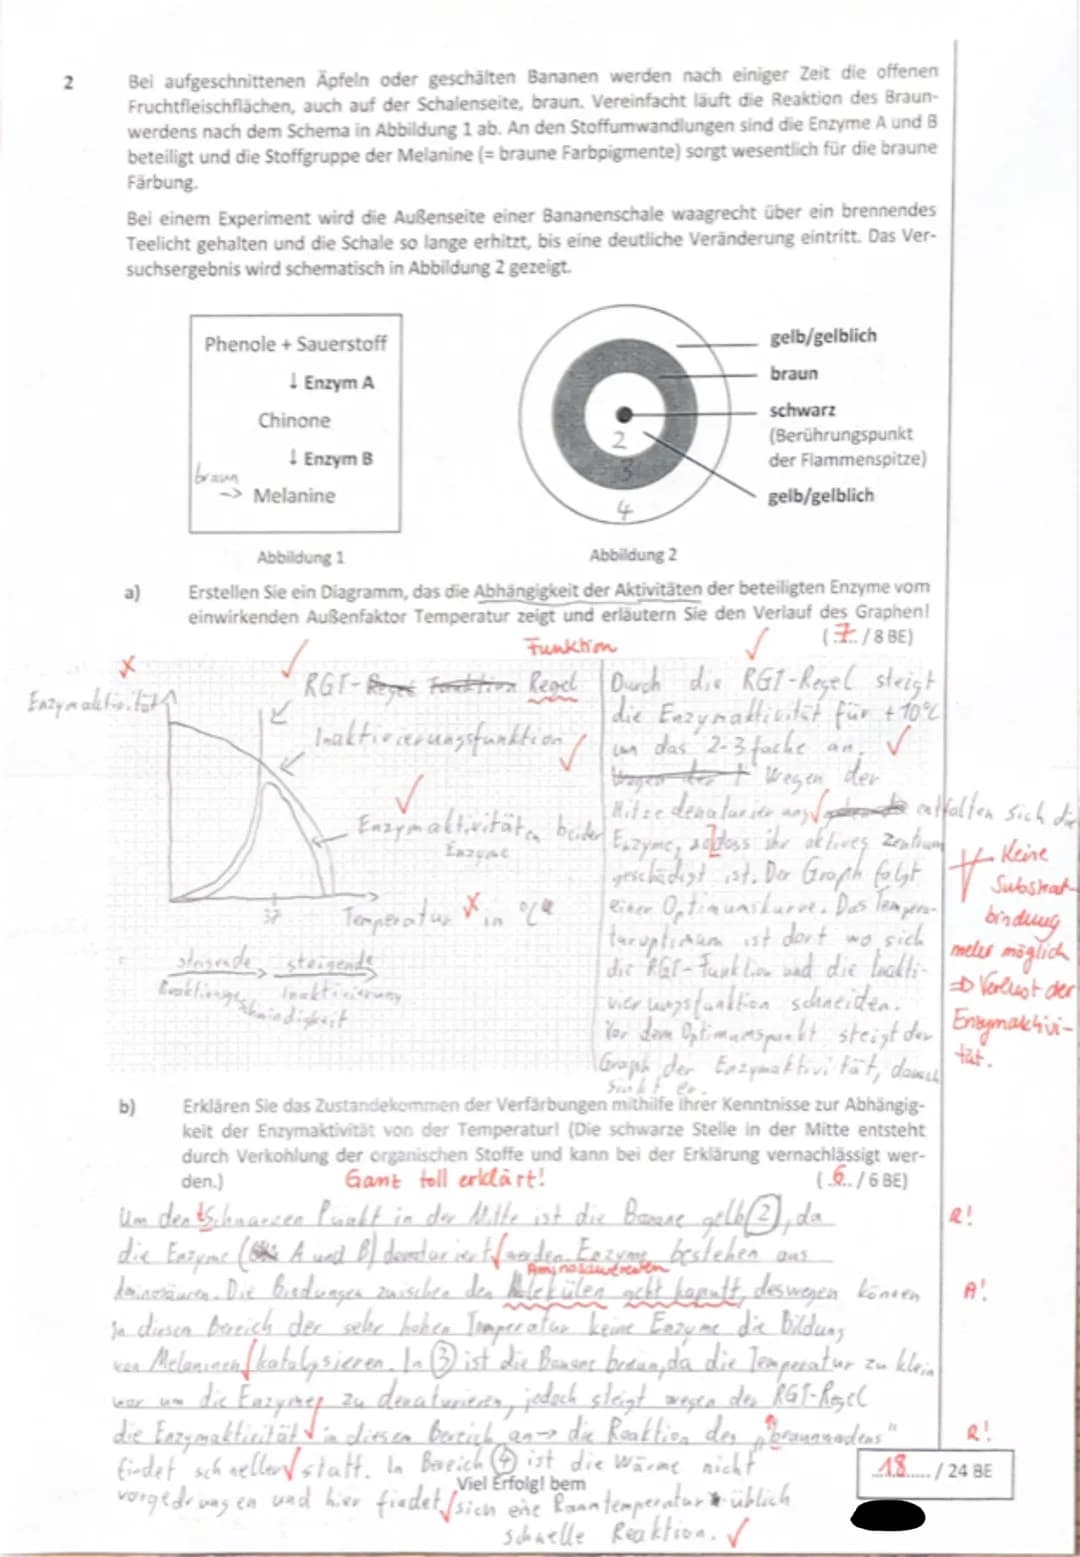 2 Bei aufgeschnittenen Äpfeln oder geschälten Bananen werden nach einiger Zeit die offenen
Fruchtfleischflächen, auch auf der Schalenseite, braun. Vereinfacht läuft die Reaktion des Braun-
werdens nach dem Schema in Abbildung 1 ab. An den Stoffumwandlungen sind die Enzyme A und B
beteiligt und die Stoffgruppe der Melanine (= braune Farbpigmente) sorgt wesentlich für die braune
Färbung.
Bei einem Experiment wird die Außenseite einer Bananenschale waagrecht über ein brennendes
Teelicht gehalten und die Schale so lange erhitzt, bis eine deutliche Veränderung eintritt. Das Ver-
suchsergebnis wird schematisch in Abbildung 2 gezeigt.
Phenole + Sauerstoff
↓ Enzym A
Chinone
↓ Enzym B
braun
-> Melanine
Abbildung 1
gelb/gelblich
braun
schwarz
(Berührungspunkt
der Flammenspitze)
gelb/gelblich
2
3
4
Abbildung 2
a) Erstellen Sie ein Diagramm, das die Abhängigkeit der Aktivitäten der beteiligten Enzyme vom
einwirkenden Außenfaktor Temperatur zeigt und erläutern Sie den Verlauf des Graphen!
(.7../8 BE)
Funktion
Enzymaktivität
RGT- Regel
Inaktivierungsfunktion
Enzymaktivität beider
Enzyme
37
Temperatur in °C
steigende steigende
Reaktionsge Inaktivierung
schwindigkeit
Durch die RGT-Regel steigt
die Enzymaktivität für +10°C
um das 2-3 fache an.
Wegen der
Hitze denaturierung entfalten sich die
Enzyme, sodass ihr aktives Zentrum
geschädigt ist. Der Graph folgt
einer Optimumskurve. Das Tempera-
turoptimum ist dort wo sich
die RGT-Funktion und die Inakti-
vierungsfunktion schneiden.
Vor dem Optimumspunkt steigt der
Graph der Enzymaktivität, danach
sinkt er.
Keine
Substrat-
bindung
mehr möglich
=> Verlust der
Enzymaktivi-
tät.
b) Erklären Sie das Zustandekommen der Verfärbungen mithilfe ihrer Kenntnisse zur Abhängig-
keit der Enzymaktivität von der Temperatur! (Die schwarze Stelle in der Mitte entsteht
durch Verkohlung der organischen Stoffe und kann bei der Erklärung vernachlässigt wer-
den.)
Ganz toll erklärt!
(.6../6 BE)
Um den Schwarzen Punkt in der Mitte ist die Banane gelb (2), da
R!
die Enzyme (A und B) denaturiert werden. Enzyme bestehen aus
Aminosäureresten
Aminosäuren. Die Bindungen zwischen den Molekülen geht kaputt, deswegen können
A!
In diesen Bereich der sehr hohen Temperatur keine Enzyme die Bildung
von Melaninen katalysieren. In (3) ist die Banane braun, da die Temperatur zu klein
war um die Enzyme zu denaturieren, jedoch steigt wegen der RGT-Regel
die Enzymaktivität in diesem Bereich an -> die Reaktion des "braunwerdens"
R!
findet schneller statt. In Bereich (4) ist die Wärme nicht
18 / 24 BE
Viel Erfolg! bem
vorgedrungen und hier findet sich eine Raumtemperatur üblich
schnelle Reaktion.